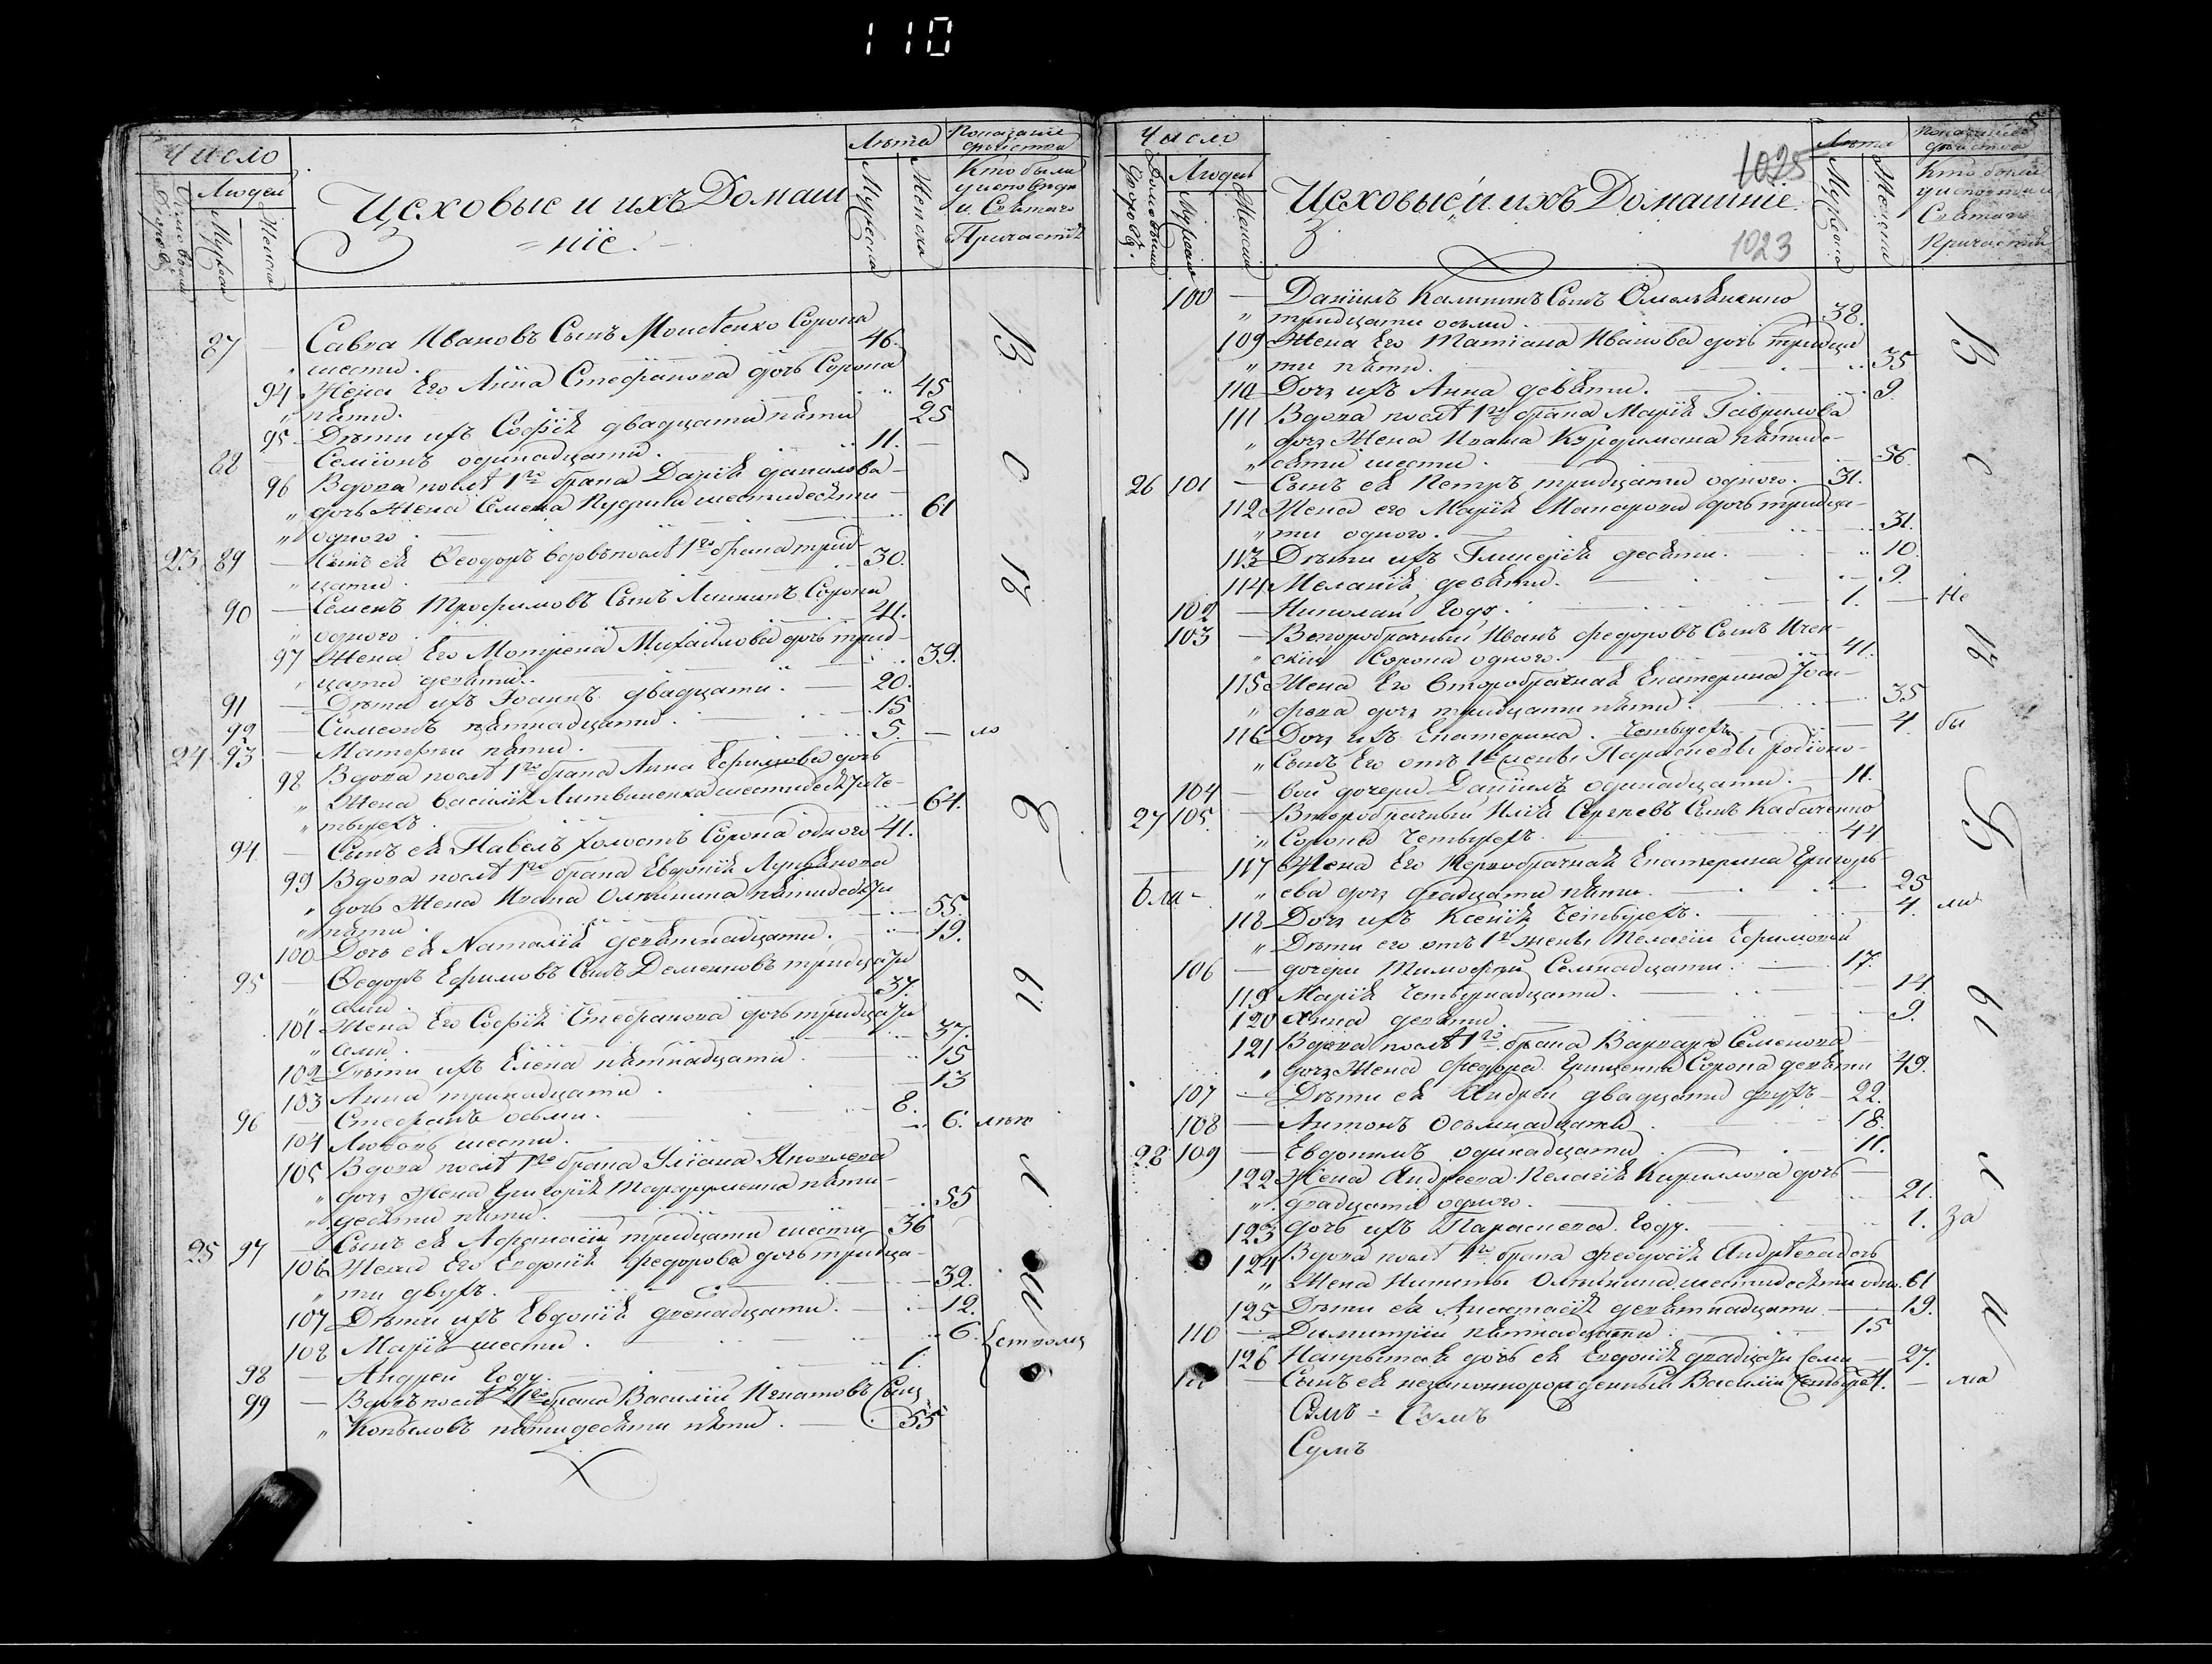 110
Число
Людей
Мужеска
Женска
Цеховые и ихъ Домаш
=ніе.
Лѣта
Мужеска
Женска
Показаніе
Кто были
у исповѣди
и Святаго
Причастія
87 — Савва Ивановъ Сынъ Сорока
„ шести. 46.
94 Жена Его Анна Стефанова дочь Сорока
„ пяти. 45
95 Дѣти ихъ Софія двадцати пяти 25
88 — Семіонъ одинадцати. 11. —
96 Вдова послѣ 1го брака Дарія данилова
„ дочь Жена Семена шестидесяти
„ одного. 61
23 89 — Сынъ ея Ѳеодоръ вдовъ послѣ 1го брака трид-
„ цати. 30.
90 — Семенъ Трофимовъ Сынъ Сорока
„ одного. 41.
97 Жена Его Мотрена Михайлова дочь трид-
„ цати девяти. 39.
91 — Дѣти ихъ Іоаннъ двадцати. 20.
92 — Симеонъ пятнадцати. 15
24 93 — пяти. 5. — ло
98 Вдова послѣ 1го брака Анна Ефимова дочь
„ Жена василія Литвиненка шестидесяти че-
„ тырехъ. 64.
94 — Сынъ ея Павелъ холостъ Сорока одного 41.
99 Вдова послѣ 1го брака Евдокія Лукьянова
„ дочь Жена Ивана пятидесяти
„ пяти. 55.
100 Дочь ея Наталія девятнадцати. 19.
95 — Ѳедоръ Ефимовъ Сынъ Деменковъ тридцати
„ семи. 37.
101 Жена Его Софія Стефанова дочь тридцати
„ семи. 37.
102 Дѣти ихъ Елена пятнадцати. 15
103 Анна тринадцати. 13
96 — Стефанъ осьми. 8.
104 Любовь шести. 6.
105 Вдова послѣ 1го брака Уліана Яковлева
„ дочь Жена Григорія пяти-
„ десяти пяти. 55
25 97 — Сынъ ея Афанасій тридцати шести 36
106 Жена Его Евдокія Федорова дочь тридца-
„ ти двухъ. 32.
107 Дѣти ихъ Евдокія двенадцати. 12.
108 Марія шести. 6.
98 — Андрей Году. 1.
99 — Вдовъ послѣ 1го брака Василій Игнатовъ Сынъ
„ Копыловъ пятидесяти пяти. 55
Число
Людей
Мужеска
Женска
Цеховые и ихъ Домашніе.
1025
1023
Лѣта
Мужеска
Женска
Кто были
Святаго
Причастія
100 — Даніилъ Калининъ Сынъ Омельяненко
„ тридцати осьми. 38.
109 Жена Его Татіана Иванова дочь тридца
„ ти пяти. 35
110 Дочь ихъ Анна девяти. 9.
111 Вдова послѣ 1го брака Марія Гаврилова
„ дочь Жена Ивана Курдимана пятиде-
„ сяти шести. 56.
26 101 — Сынъ ея Петръ тридцати одного. 31.
112 Жена его Марія Макарова дочь тридца-
„ ти одного. 31.
113 Дѣти ихъ Гликерія десяти. 10.
114 Меланія девяти. 9.
102 — Николай Году. 1. — Не
103 — Второбрачный Иванъ Федоровъ Сынъ
„ скій Сорока одного. 41.
115 Жена Его Второбрачная Екатерина Іоси-
„ фова дочь тридцати пяти. 35
116 Дочь ихъ Екатерина. Четырехъ. 4. бы
„ Сынъ Его отъ 1й жены Параскевы родіоно-
104 — вой дочери Даніилъ одинадцати. 11.
27 105 — Второбрачный Илія Сергеевъ Сынъ Кабаченко
„ Сорока Четырехъ. 44
117 Жена Его Первобрачная Екатерина Григорь-
„ ева дочь двадцати пяти. 25
118 Дочь ихъ Ксенія Четырехъ. 4. ли
„ Дѣти его отъ 1й жены Пелагіи Ефимовой
106 — дочери Тимофей Семнадцати. 17.
119 Марія Четырнадцати. 14.
120 Анна девяти. 9.
121 Вдова послѣ 1го брака Варвара Семенова
„ дочь Жена Федора Грищенка Сорока девяти 49.
107 — Дѣти ея Андрей двадцати двухъ 22.
108 — Антонъ Осьмнадцати. 18.
28 109 — Евдокимъ одинадцати. 11.
122 Жена Андреева Пелагія Кириллова дочь
„ двадцати одного. 21.
123 дочь ихъ Параскева. Году. 1. за
124 Вдова послѣ 1го брака Феодосія Андреева дочь
„ Жена Никиты шестидесяти одн. 61
125 Дѣти ея Анастасія девятнадцати. 19.
110 — Димитрій пятнадцати. 15
126 дочь ея Евдокія двадцати семи 27.
111 — Сынъ ея незаконнорожденный Василій Четырех 4. — ма
Сумъ = Сумъ
Сумъ